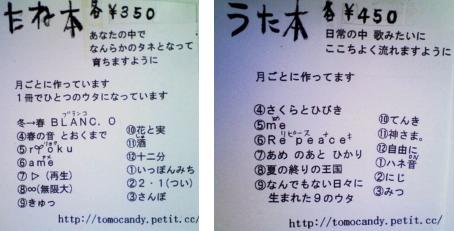 たね本 各¥350
あなたの中で
なんらかのタネとなって
育ちますように
月ごとに作っています
1冊でひとつのウタになっています
ブランコ
冬→春 BLANC.O
④春の音 とおくまで
⑤ryoku
⑥ame
⑦▷(再生)
⑧∞(無限大)
⑨きゅっ
⑩花と実
⑪酒
⑫十二分
①いっぽんみち
②2・1(つい)
③さんぽ
http://tomocandy.petit.cc/
うた本 各¥450
日常の中 歌みたいに
ここちよく流れますように
月ごとに作ってます
④さくらとひびき
⑤me
⑥Re peace
⑦あめ のあと ひかり
⑧夏の終りの王国
⑨なんでもない日々に
生まれた9のウタ
⑩てんき
⑪神さま。
⑫自由に
①ハネ音
②にじ
③みつ
http://tomocandy.petit.cc/